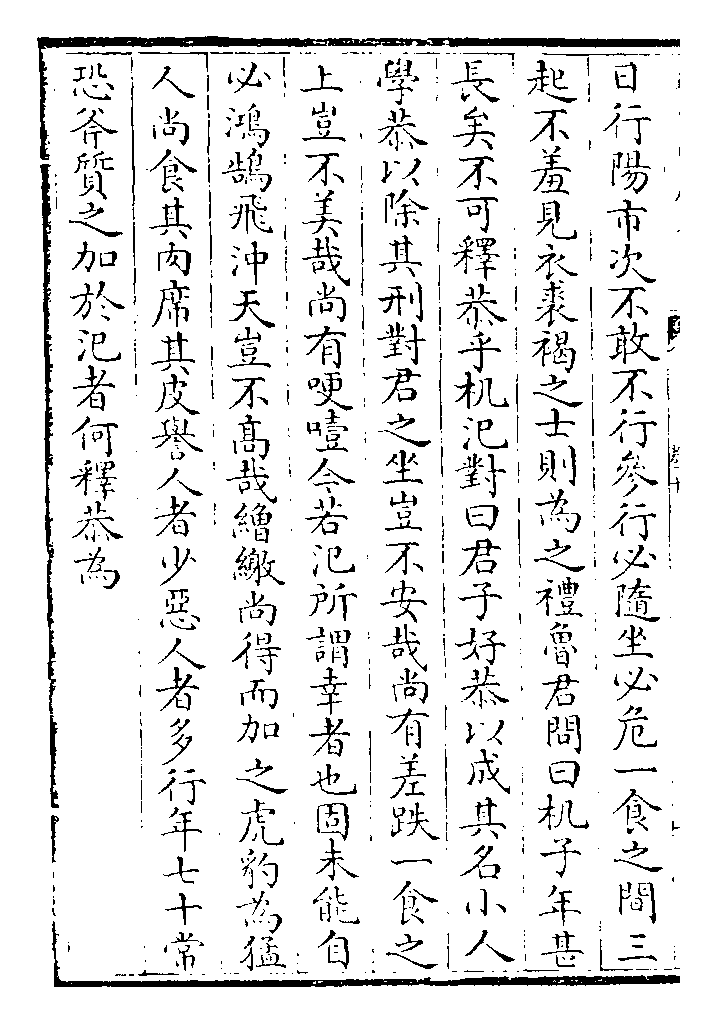 日行陽市次不敢不行參行必隨坐必危一食之間三
起不羞見衣裘褐之士則為之禮魯君問曰机子年甚
長矣不可釋恭乎机氾對曰君子好恭以成其名小人
學恭以除其刑對君之坐豈不安哉尚有差跌一食之
上豈不美哉尚有哽噎今若氾所謂幸者也固未能自
必鴻鵠飛沖天豈不髙哉繒繳尚得而加之虎豹為猛
人尚食其肉席其皮譽人者少惡人者多行年七十常
恐斧質之加於氾者何釋恭為